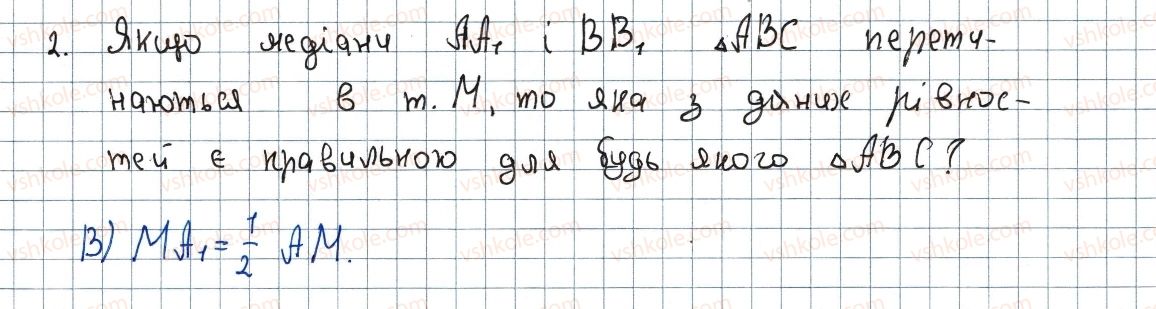 2. Якщо медіани AA₁ і BB₁ △ABC перети-
наються в т. M, то яка з даних рівнос-
тей є правильною для будь якого △ABC?
В) MA₁ = 1/2 AM.